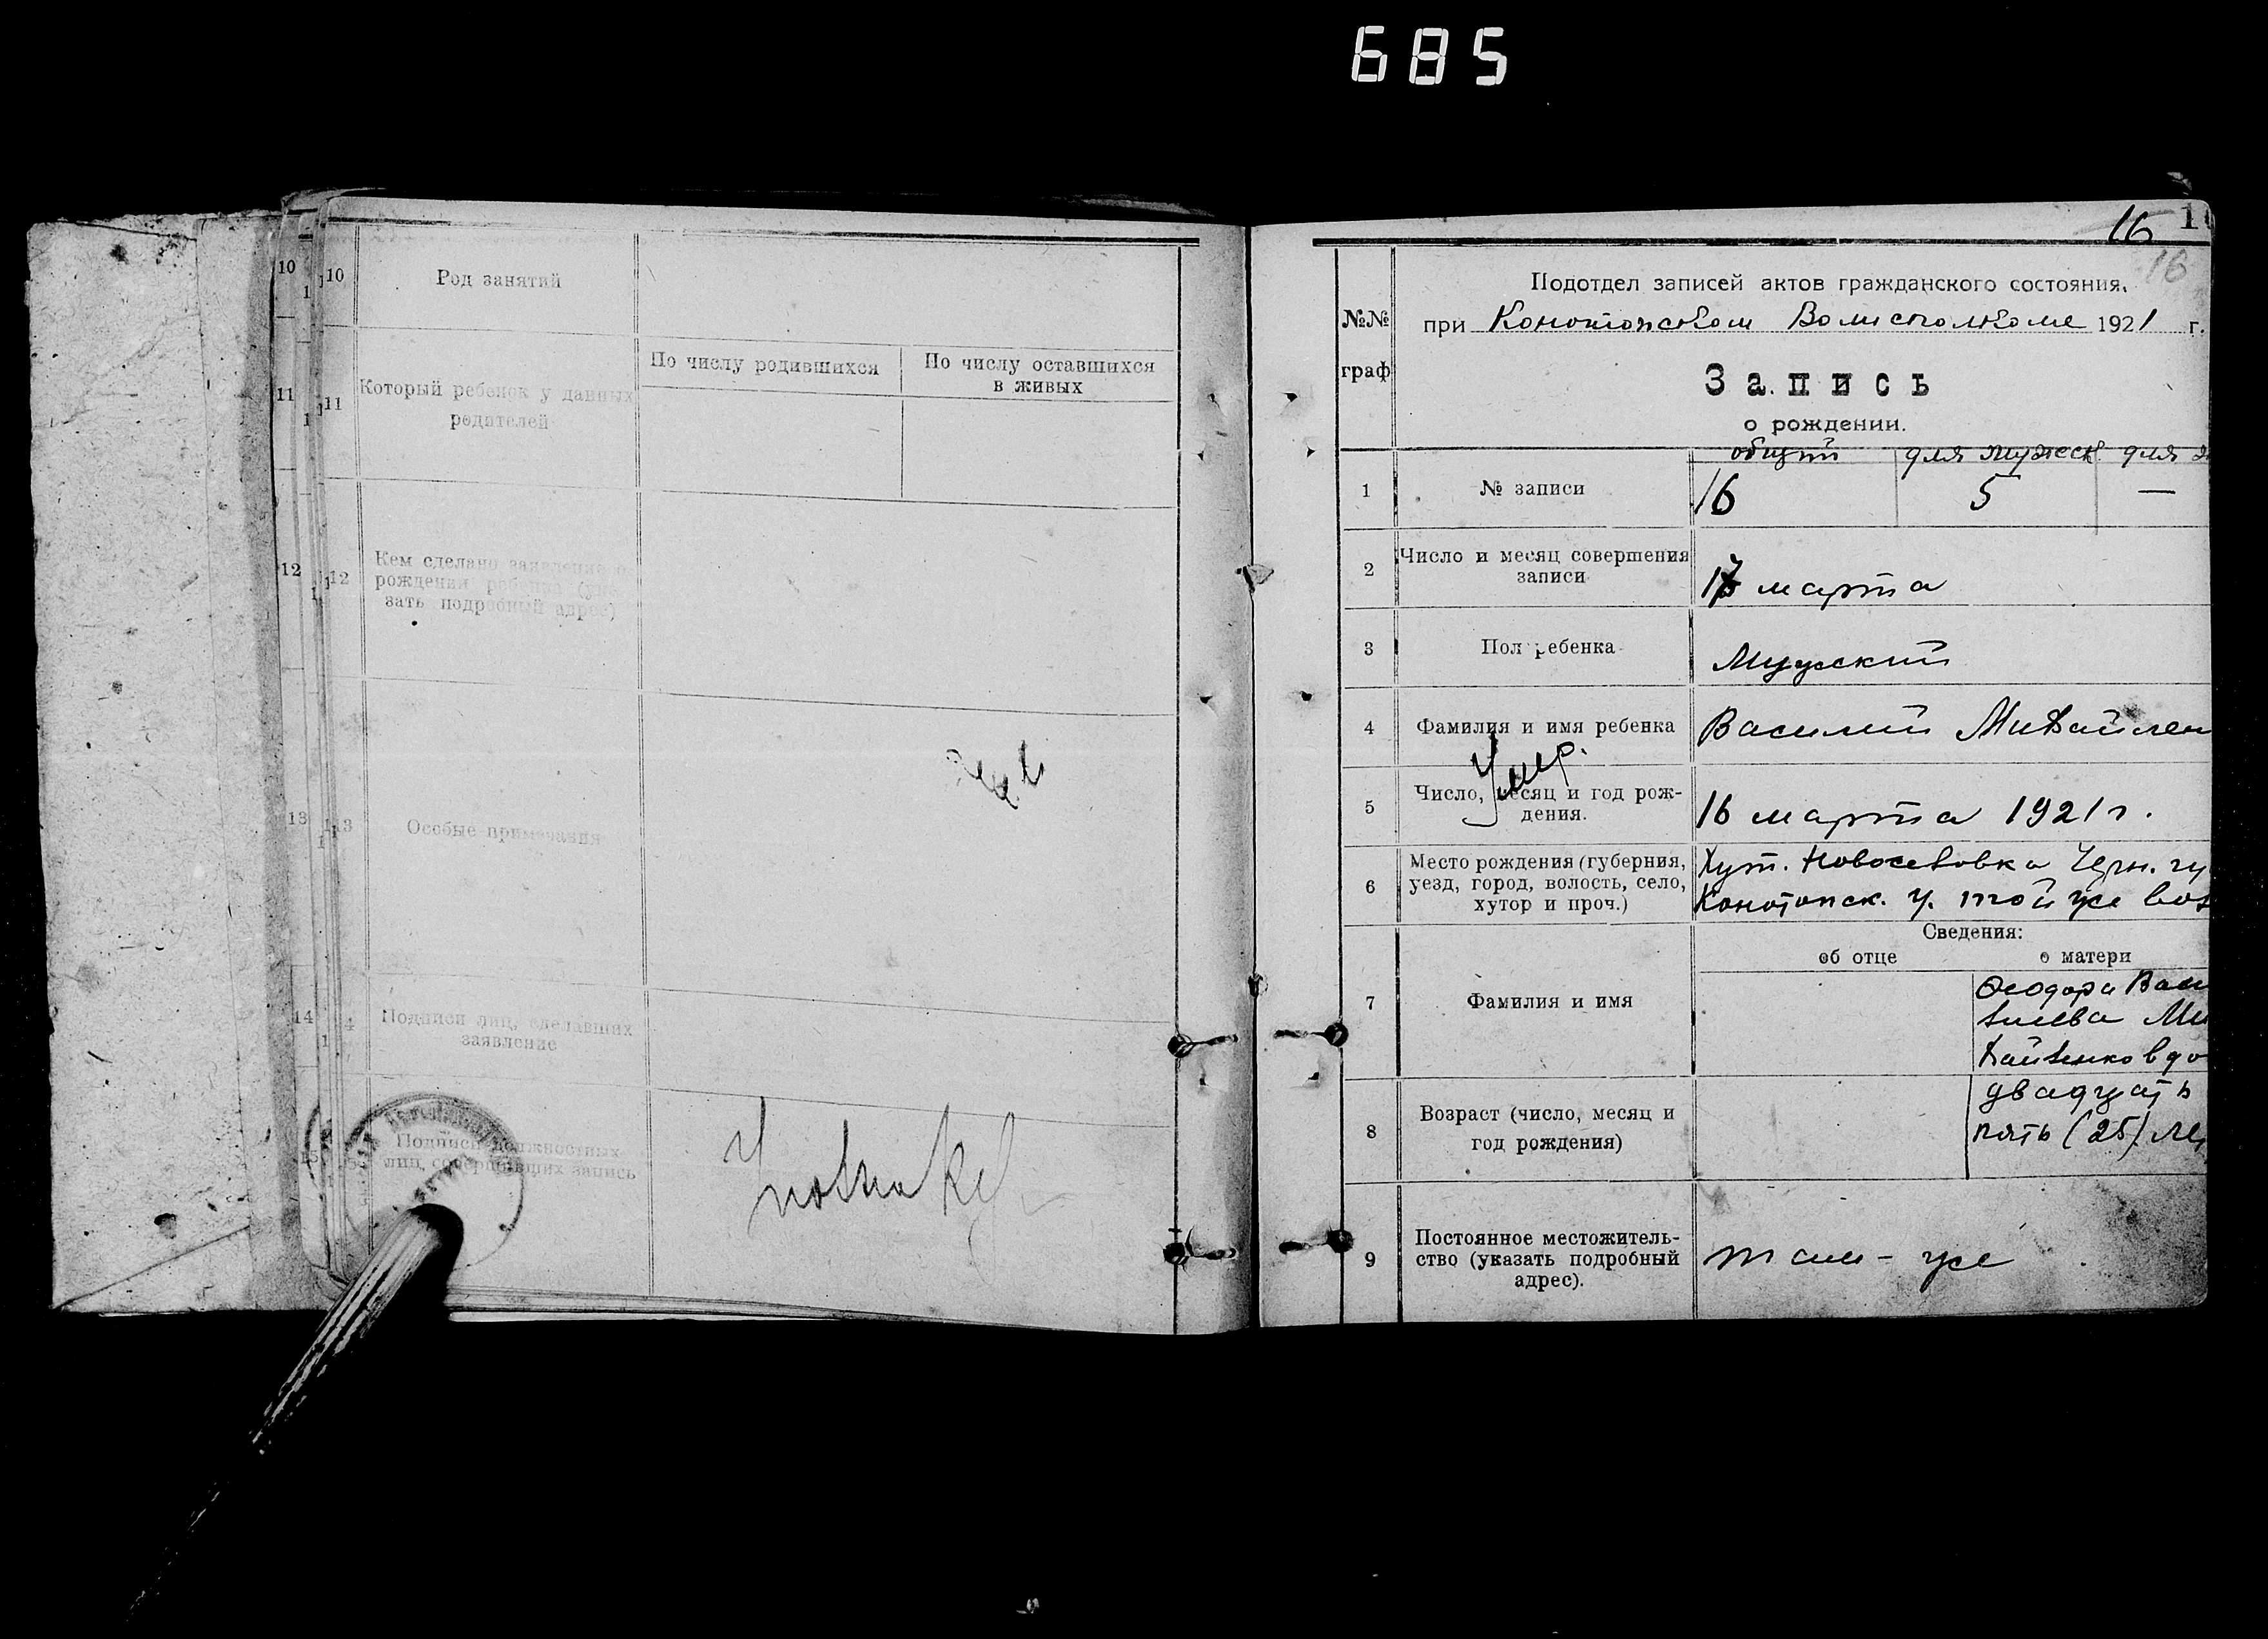 685
10
Род занятий
11
Который ребенок у данных
родителей
По числу родившихся
По числу оставшихся
в живых
12
Кем сделано заявление о
рождении ребенка (ука-
зать подробный адрес)
13
Особые примечания
14
Подписи лиц, сделавших
заявление
15
Подписи должностных
лиц, совершивших запись
16
16
№№
граф
Подотдел записей актов гражданского состояния,
при Конотопском Волисполкоме 1921 г.
Запись
о рождении.
общий для мужск. для
1 № записи 16 5 —
2 Число и месяц совершения
записи
17 марта
3 Пол ребенка Мужский
4 Фамилия и имя ребенка Василий Михайлен
Умер.
5 Число, месяц и год рож-
дения.
16 марта 1921 г.
6 Место рождения (губерния,
уезд, город, волость, село,
хутор и проч.)
Хут. Новоселовка Черн. гу
Конотопск. у. той же вол
Сведения:
об отце о матери
7 Фамилия и имя
Феодора Васи
лиева Ми
хайленко вдо
8 Возраст (число, месяц и
год рождения)
двадцать
пять (25) ле
9 Постоянное местожитель-
ство (указать подробный
адрес).
там - же